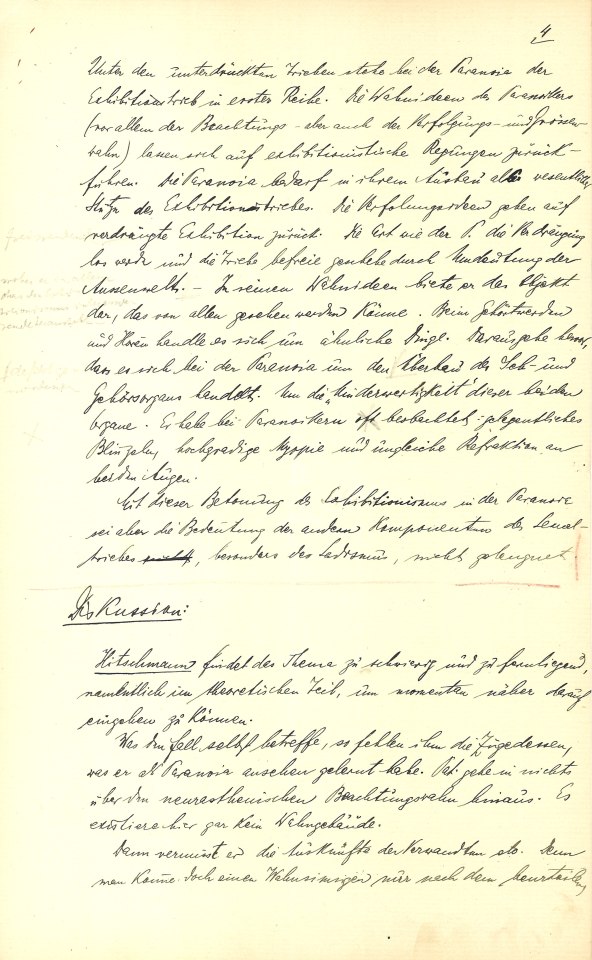 4
Unter den unterdrückten Trieben stehe bei der Paranoia der
Exhibitionstrieb in erster Reihe. Die Wahnideen des Paranoikers
(vor allem der Beachtungs- aber auch der Verfolgungs- und Grössen-
wahn) lassen sich auf exhibitionistische Regungen zurück-
führen. Die Paranoia bedarf in ihrem Ausbau als wesentlicher
Stütze des Exhibitionstriebes. Die Verfolgungsideen gehen auf
verdrängte Exhibition zurück. Die Art wie der P. die Verdrängung
los werde und die Triebe befreie geschehe durch Umdeutung der
Aussenwelt. - In seinen Wahnideen biete er das Objekt
dar, das von allen gesehen werden könne. Beim Gehörtwerden
und Hören handle es sich um ähnliche Dinge. Daraus gehe hervor,
dass es sich bei der Paranoia um den Überbau des Seh- und
Gehörsorgans handelt. Um die "Minderwertigkeit" dieser beiden
Organe. Er habe bei Paranoikern oft beobachtet: gelegentliches
Blinzeln, hochgradige Myopie und ungleiche Refraktion an
beiden Augen.
Mit dieser Betonung des Exhibitionismus in der Paranoia
sei aber die Bedeutung der andern Komponenten des Sexual-
triebes, besonders des Sadismus, nicht geleugnet.
Diskussion:
Hitschmann findet das Thema zu schwierig und zu fernliegend,
namentlich im theoretischen Teil, um momentan näher darauf
eingehen zu können.
Was den Fall selbst betreffe, so fehlen ihm die Züge dessen,
was er als Paranoia ansehen gelernt habe. Pat. gehe in nichts
über den neurasthenischen Beachtungswahn hinaus. Es
existiere hier gar kein Wahngebäude.
Dann vermisst er die Auskünfte der Verwandten etc. Denn
man könne doch einen Wahnsinnigen nur nach dem beurteilen,